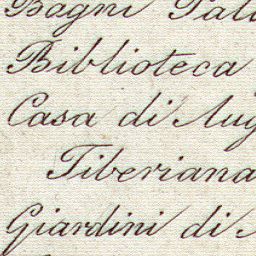 Bagni
Biblioteca
Casa di
Tiberiana
Giardini di